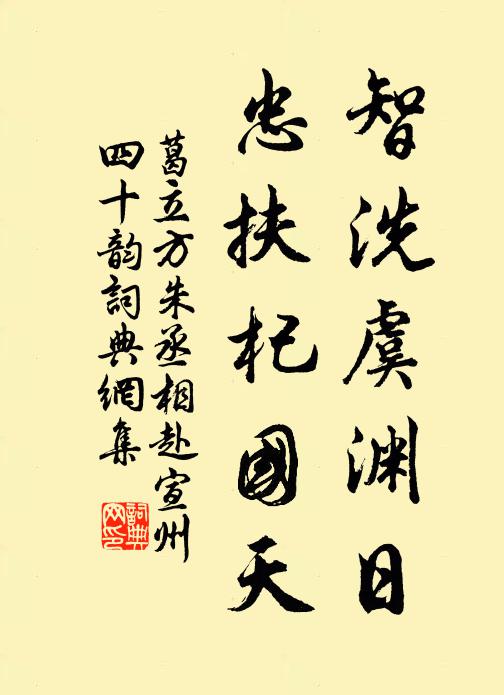 智洗虞渊日
忠扶杞國天
葛立方朱丞相赴宣州
四十韵詞典網集
詞典
网印